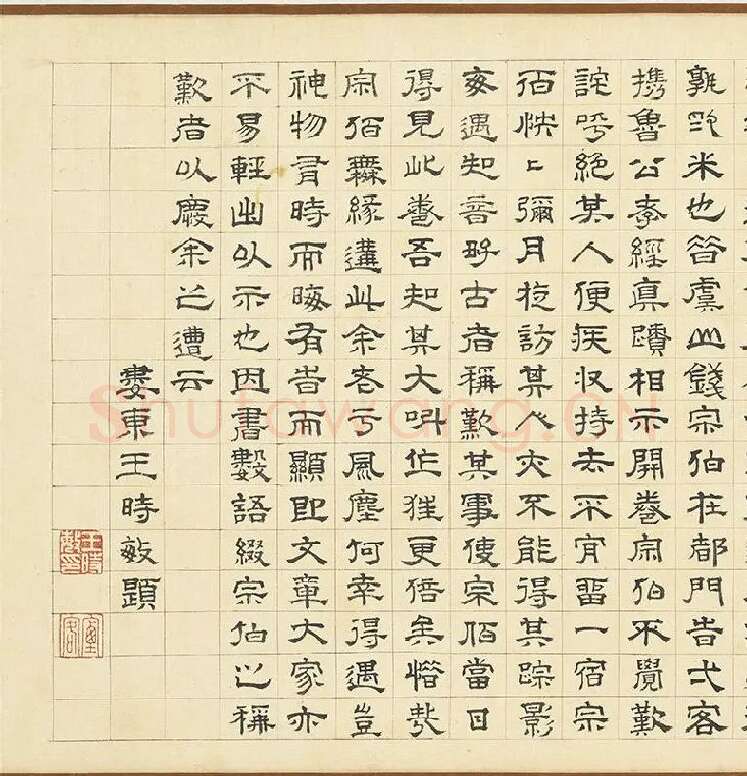 孰米也昔虞山錢宗伯在都門旹弌客
攜魯公孝經真蹟相示開卷宗伯不覺歎
詫呼絕其人便疾收持去不肎留一宿宗
伯怏〻彌月旋訪其人亦不能得其踪影
每遇知音好古者稱歎其事使宗伯當日
得見此卷吾知其大叫作狂更倍矣惜哉
宗伯無緣遘此余老于風塵何幸得遇豈
神物有時而晦有旹而顯即文章大家亦
不易輕出以示也因書數語綴宗伯之稱
歎者以慶余之遭云
婁東王時敏題
王時敏印
Shufawang.CN